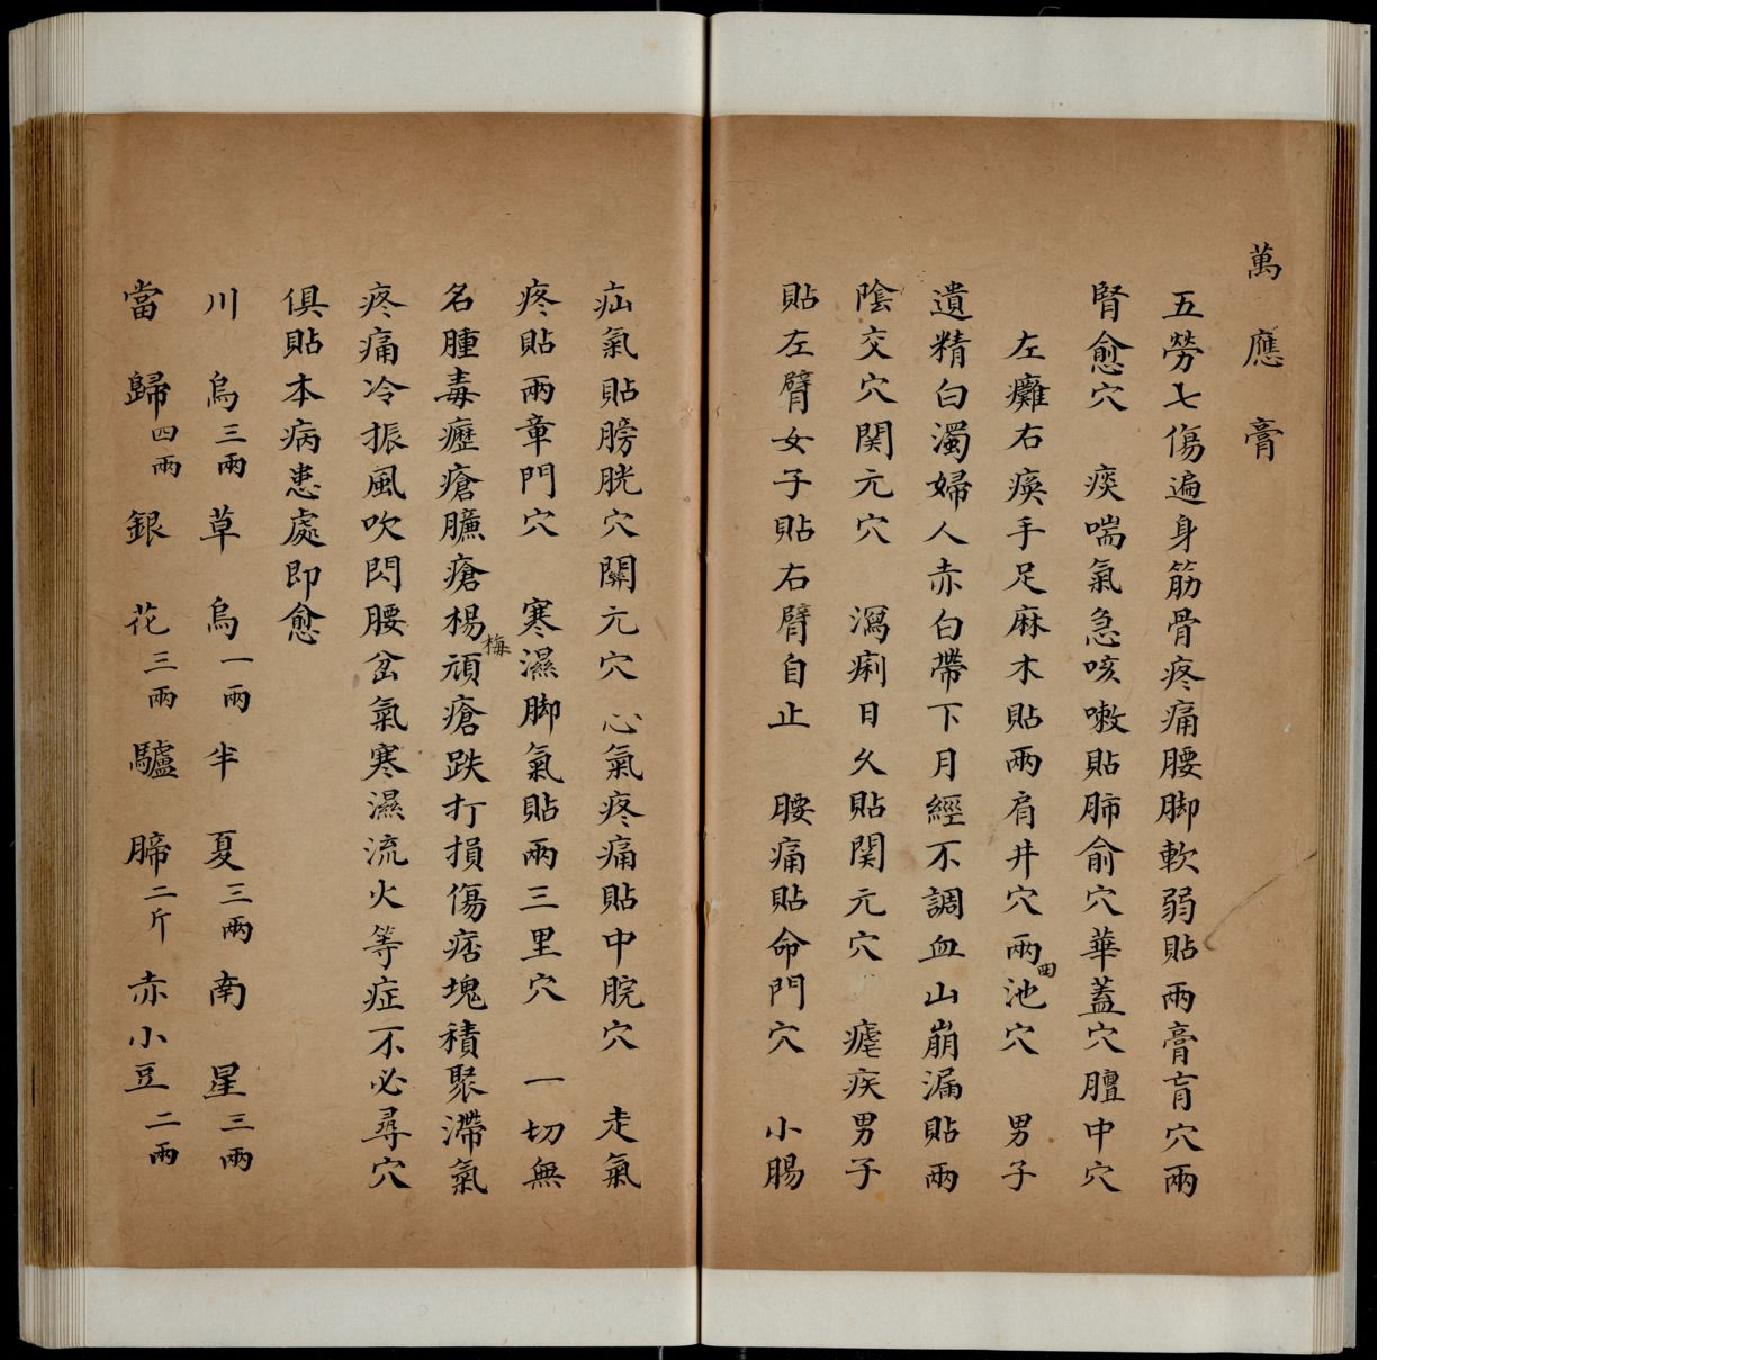 萬應膏
五勞七傷遍身筋骨疼痛腰脚軟弱貼兩膏肓穴兩
腎愈穴　痰喘氣急咳嗽貼肺俞穴華蓋穴膻中穴
左癱右瘓手足麻木貼兩肩井穴兩曲池穴　男子
遺精白濁婦人赤白帶下月經不調血山崩漏貼兩
陰交穴関元穴　瀉痢日久貼関元穴　瘧疾男子
貼左臂女子貼右臂自止　腰痛貼命門穴　小腸
疝氣貼膀胱穴關元穴　心氣疼痛貼中脘穴　走氣
疼貼兩章門穴　寒濕脚氣貼兩三里穴　一切無
名腫毒瘰瘡臁瘡楊梅頑瘡跌打損傷痞塊積聚滯氣
疼痛冷振風吹閃腰岔氣寒濕流火等症不必尋穴
俱貼本病患處即愈
川烏三兩　草烏一兩　半夏三兩　南星三兩
當歸四兩　銀花三兩　驢蹄二斤　赤小豆二兩